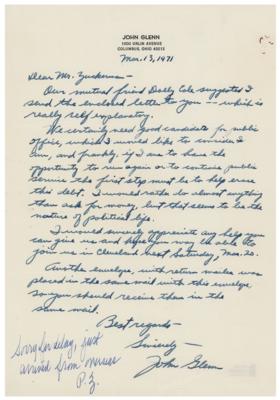 JOHN GLENN
1000 URLIN AVENUE
COLUMBUS, OHIO 43212
Mar. 13, 1971
Dear Mr. Zuckerman—
Our mutual friend Dolly Cole suggested I
send the enclosed letter to you -- which is
really self explanatory.
We certainly need good candidates for public
office, which I would like to consider I
am, and frankly, if I am to have the
opportunity to run again or to continue public
service the first step must be to help erase
this debt. I would rather do almost anything
than ask for money, but that seems to be the
nature of political life.
I would sincerely appreciate any help you
can give us and hope you may be able to
join us in Cleveland next Saturday, Mar. 20.
Another envelope, with return mailer was
placed in the same mail with this envelope
so you should receive them in the
same mail.
Best regards—
Sincerely—
John Glenn
Sorry for delay, just
arrived from
P. Z.